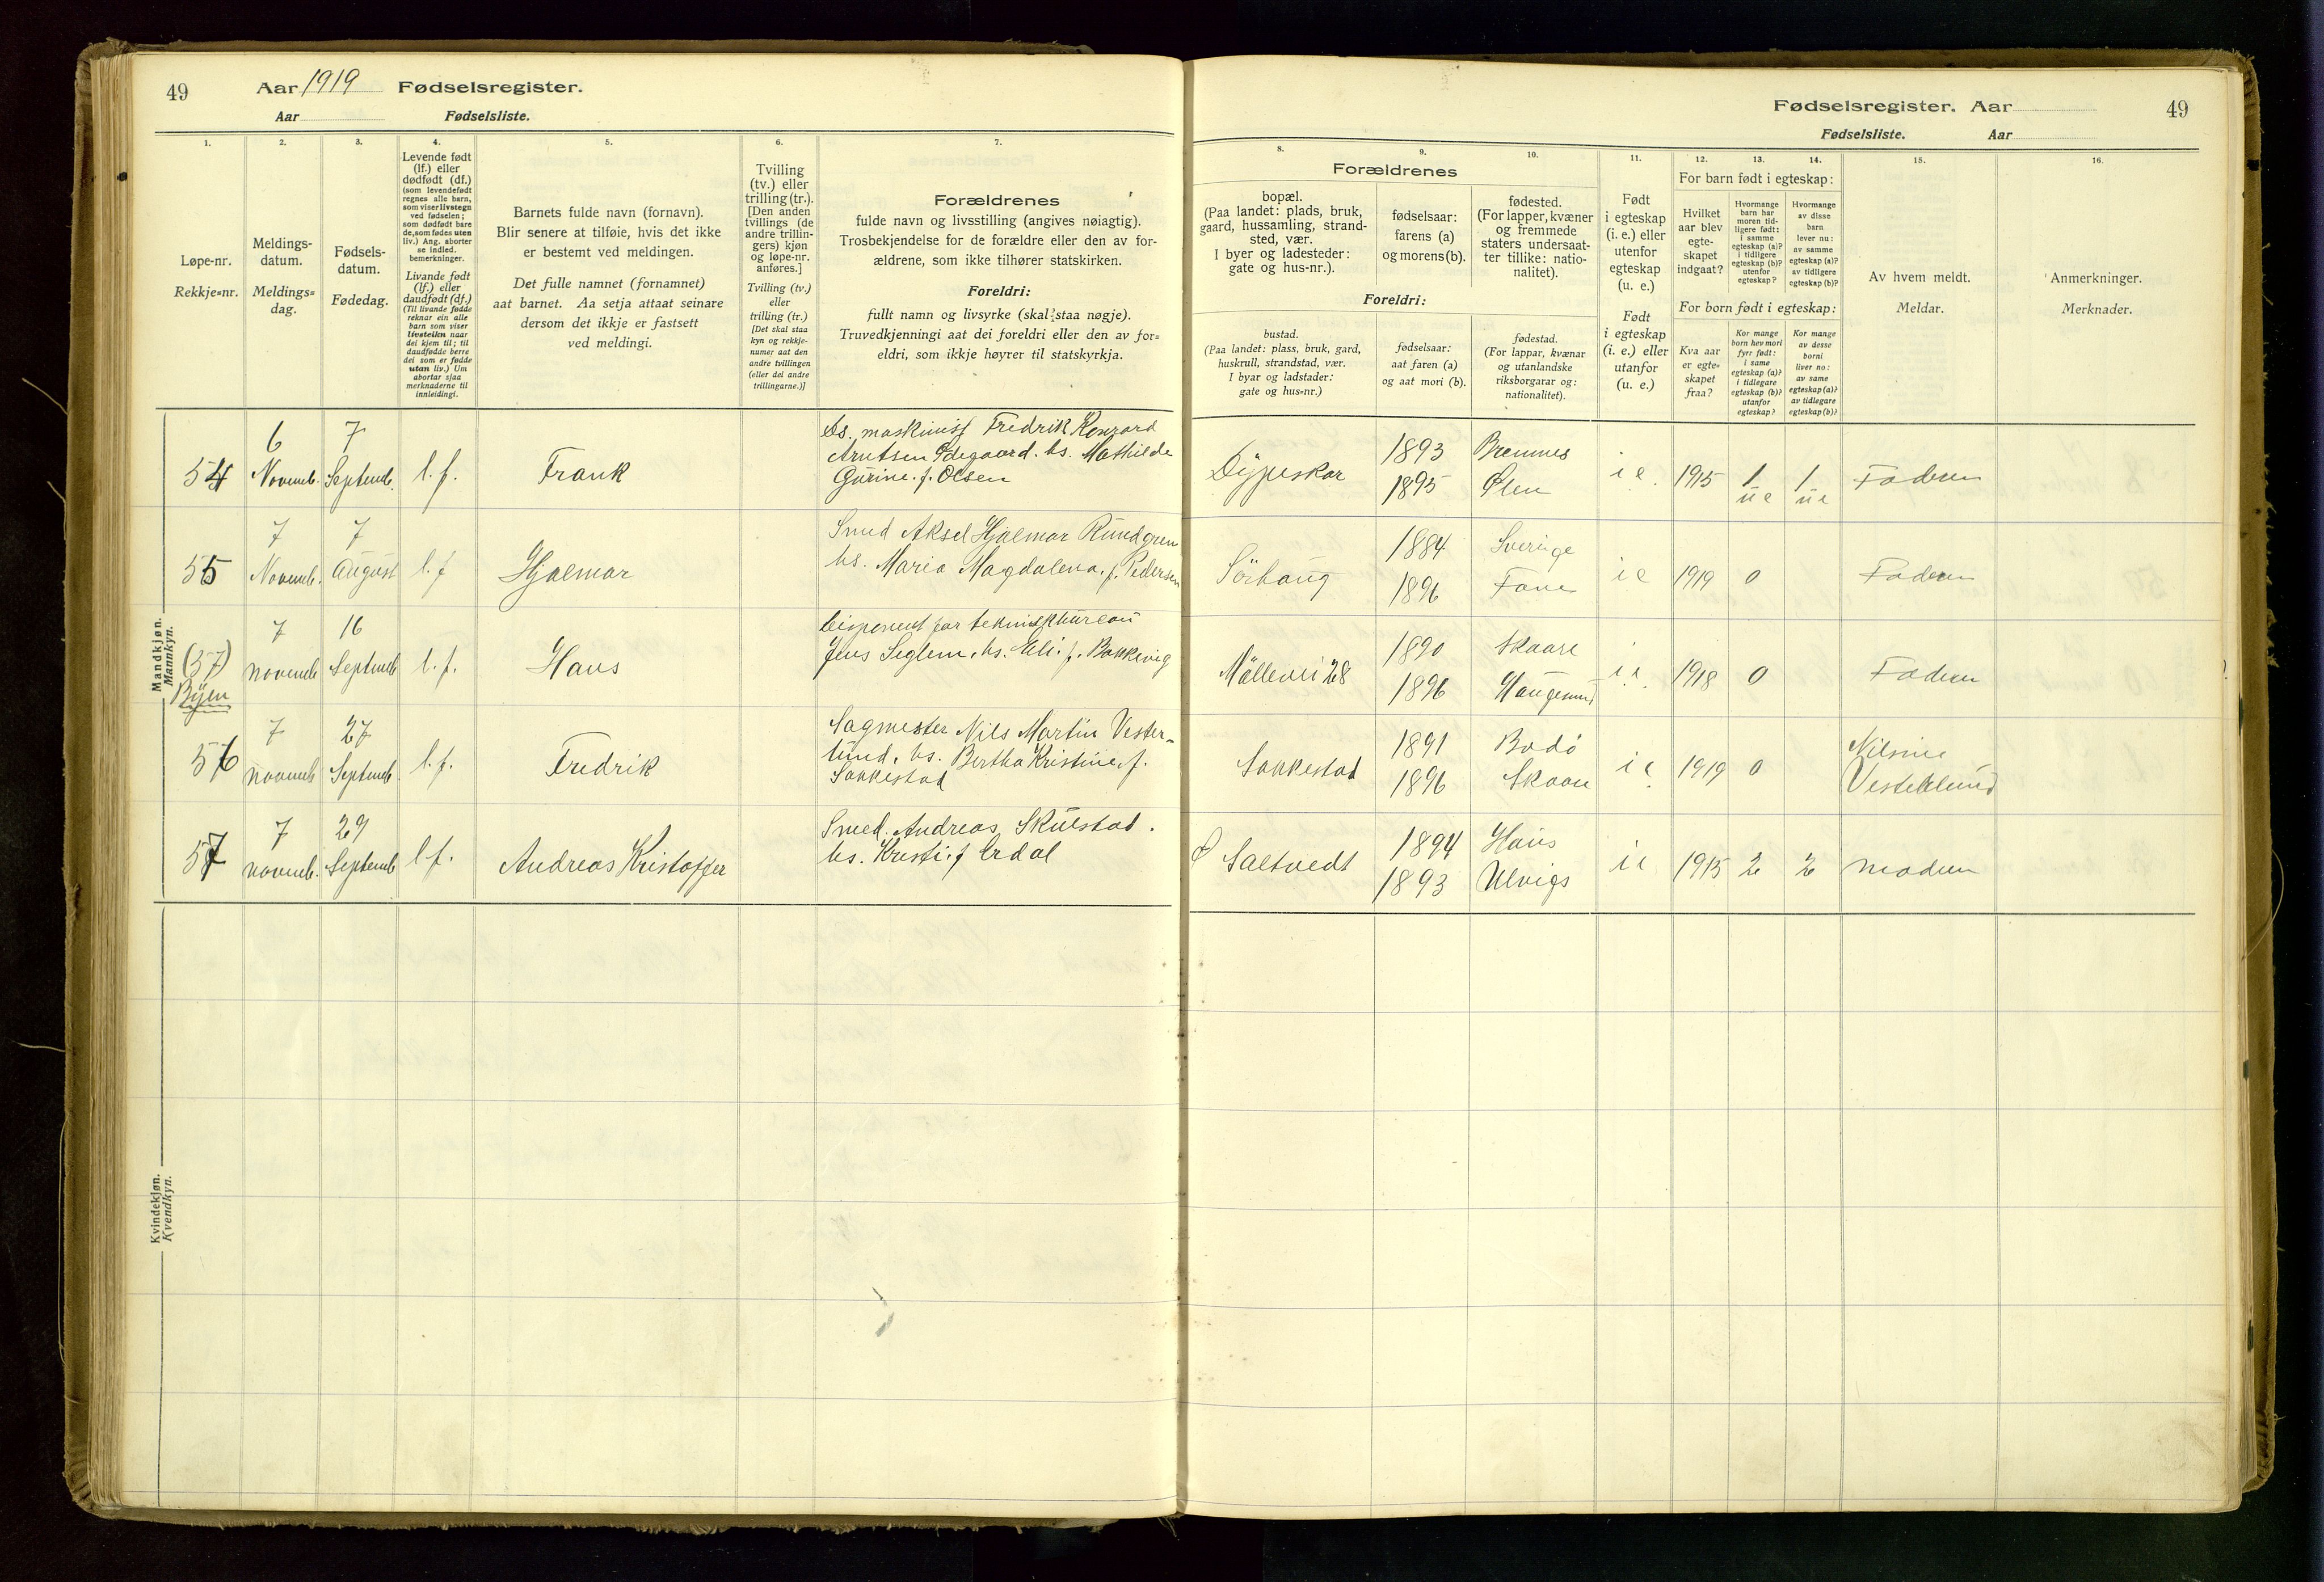 49
Aar 1919 Fødselsregister.
Aar Fødselsliste.
Fødselsregister. Aar
49
Fødselsliste. Aar
1.
Løpe-nr.
Rekkje=nr.
2.
Meldings-
datum.
Meldings=
dag.
3.
Fødsels-
datum.
Fødedag.
4.
Levende født
(lf.) eller
dødfødt (df.)
(som levendefødt
regnes alle barn,
som viser livstegn
ved fødselen;
som dødfødt bare
de, som fødes uten
liv.) Ang. aborter
se indled.
bemerkninger.
Livande født
(lf.) eller
daudfødt (df.)
(Til livande fødde
reknar ein alle
barn som viser
livsteikn naar
dei kjem til; til
daudfødde berre
dei som er fødde
utan liv.) Um
abortar sjaa
merknaderne til
innleidingi.
5.
Barnets fulde navn (fornavn).
Blir senere at tilføie, hvis det ikke
er bestemt ved meldingen.
Det fulle namnet (fornamnet)
aat barnet. Aa setja attaat seinare
dersom det ikkje er fastsett
ved meldingi.
6.
Tvilling
(tv.) eller
trilling (tr.).
[Den anden
tvillings (de
andre trillin-
gers) kjøn
og løpe-nr.
anføres.]
Tvilling (tv.)
eller
trilling (tr.)
[Det skal staa
kyn og rekkje-
numer aat den
andre tvillingen
(eller dei andre
trillingarne.)]
7.
Forældrenes
fulde navn og livsstilling (angives nøiagtig).
Trosbekjendelse for de forældre eller den av for-
ældrene, som ikke tilhører statskirken.
Foreldri:
fullt namn og livsyrke (skal staa nøgje).
Truvedkjenningi aat dei foreldri eller den av for=
eldri, som ikkje høyrer til statskyrkja.
Forældrenes
8.
bopæl.
(Paa landet: plads, bruk,
gaard, hussamling, strand-
sted, vær.
I byer og ladesteder:
gate og hus-nr.).
9.
fødselsaar:
farens (a)
og morens (b).
10.
fødested.
(For lapper, kvæner
og fremmede
staters undersaat-
ter tillike: natio-
nalitet).
Foreldri:
bustad.
(Paa landet: plass, bruk, gard,
huskrull, strandstad, vær.
I byar og ladstader:
gate og hus=nr.)
fødselsaar:
aat faren (a)
og aat mori (b).
fødestad.
(For lappar, kvænar
og utanlandske
riksborgarar og:
nationalitet).
11.
Født
i egteskap
(i. e.) eller
utenfor
egteskap
(u. e.)
Født
i egteskap
(i. e.) eller
utanfor
(u. e.)
12. 13. 14.
For barn født i egteskap:
Hvilket
aar blev
egte-
skapet
indgaat?
Hvormange
barn har
moren tid-
ligere født:
i samme
egteskap (a)?
i tidligere
egteskap (b)?
utenfor
egteskap?
Hvormange
av disse
barn
lever nu:
av samme
egteskap (a)?
av tidligere
egteskap (b)?
For born født i egteskap:
Kva aar
er egte=
skapet
fraa?
Kor mange
born hev mori
fyrr født:
i same
egteskap (a)?
i tidlegare
egteskap (b)?
utanfor
egteskap?
Kor mange
av desse
borni
liver no:
av same
egteskap (a)?
av tidlegare
egteskap (b)?
15.
Av hvem meldt.
Meldar.
16.
Anmerkninger.
Merknader.
Mandkjøn.
Mannkyn.
54
6 Novemb.
7 Septemb.
l. f.
Frank
Ds. maskinist Fredrik Konrard
Arntsen Ødegaard. hs. Mathilde
Gurine. f. Olsen
Dypeskar
1893 Bremnes
1895 Ølen
i e. 1915 1 ue 1 ue Faderen
55
7 Novemb.
7 August
l. f
Hjalmar
Smed Aksel Hjalmar Rundgren
hs. Maria Magdalena. f. Pedersen
Sörhaug
1884 Sverige
1896 Fane
i e 1919 0 Faderen
(57)
Byen
7 novemb
16 Septemb
l. f.
Hans
Disponent for teknisk bureau
Jens Seglem. hs. Eli. f. Bakkevig
Möllevei 28
1890 Skaare
1896 Haugesund
i. e. 1918 0 Faderen
56
7 novemb
27 Septemb.
l. f.
Fredrik
Sagmester Nils Martin Vester-
lund. hs. Bertha Kristine. f.
Sakkestad
Sakkestad
1891 Bodö
1896 Skaare
i e 1919 0
Nilsine
Vesterlund
57
7 novemb.
29 Septemb
l. f.
Andreas Kristoffer
Smed. Andreas Skulstad.
hs. Kristi. f Erdal
Ø Saltvedt
1894 Haus
1893 Ulvigs
i e 1915 2 2 moderen
Kvindekjøn.
Kvendkyn.